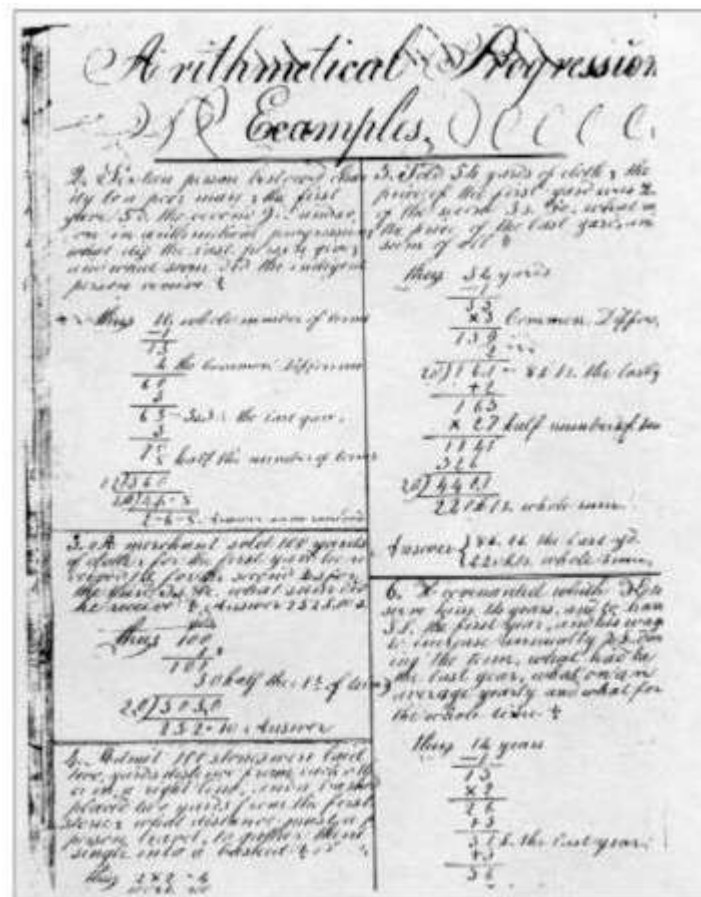 Arithmetical Progression
Examples,
2. Sixteen person bestowed char
ity to a poor man; the first
gave 5d. the second 9d. and so
on in arithmetical progression
what did the last person give,
and what sum did the indigent
person receive
thus 16 whole number of terms
-1
15
4 the Common Difference
60
5
65 the last gave.
half the number of terms
12)560
20)46-8
2-6-8. Answer
3. A merchant sold 100 yards
of cloth; for the first yard he re
for the second 2s for
the third 3s. &c. what sum did
he receive Answer 252£ 10s
thus 100
1
101
50 half the No. of terms
20)5050
252-10 Answer
4. Admit 100 stones were laid
two yards distance from each oth
er in a right line, and a basket
placed two yards from the first
stone; what distance must a
person travel, to gather them
single into a basket
thus 2x2=4
5. Sold 54 yards of cloth; the
price of the first yard was 2
of the second 5s. &c. what
the price of the last yard, an
sum of all
thus 54 yards
-1
53
x3 Common Differ
159
2
20)161 - 8£ 1s. the last
+2
163
x 27 half number of te
1141
326
20)4401
220£ 1s. whole sum.
Answer { 8£. 1s the last yd.
220£ 1s. whole sum,
6. covenanted which
serve him 14 years, and to have
5£. the first year, and his wag
to increase annually 2£. Dur
ing the term, what had he
the last year, what on an
average yearly and what for
the whole time
thus 14 years
-1
13
x2
26
+5
31£. the last year.
+5
36